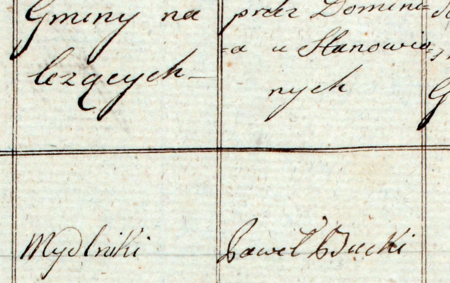 Gminy na
lezących
przez Domini
=a u Stanowio
nych
G
Mydlniki
Paweł Bucki